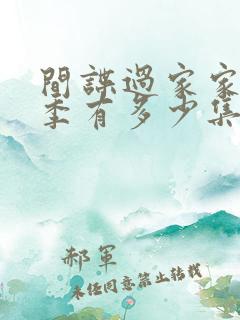 間諜過家家
季有多少集
郝軍
未经同意禁止转载